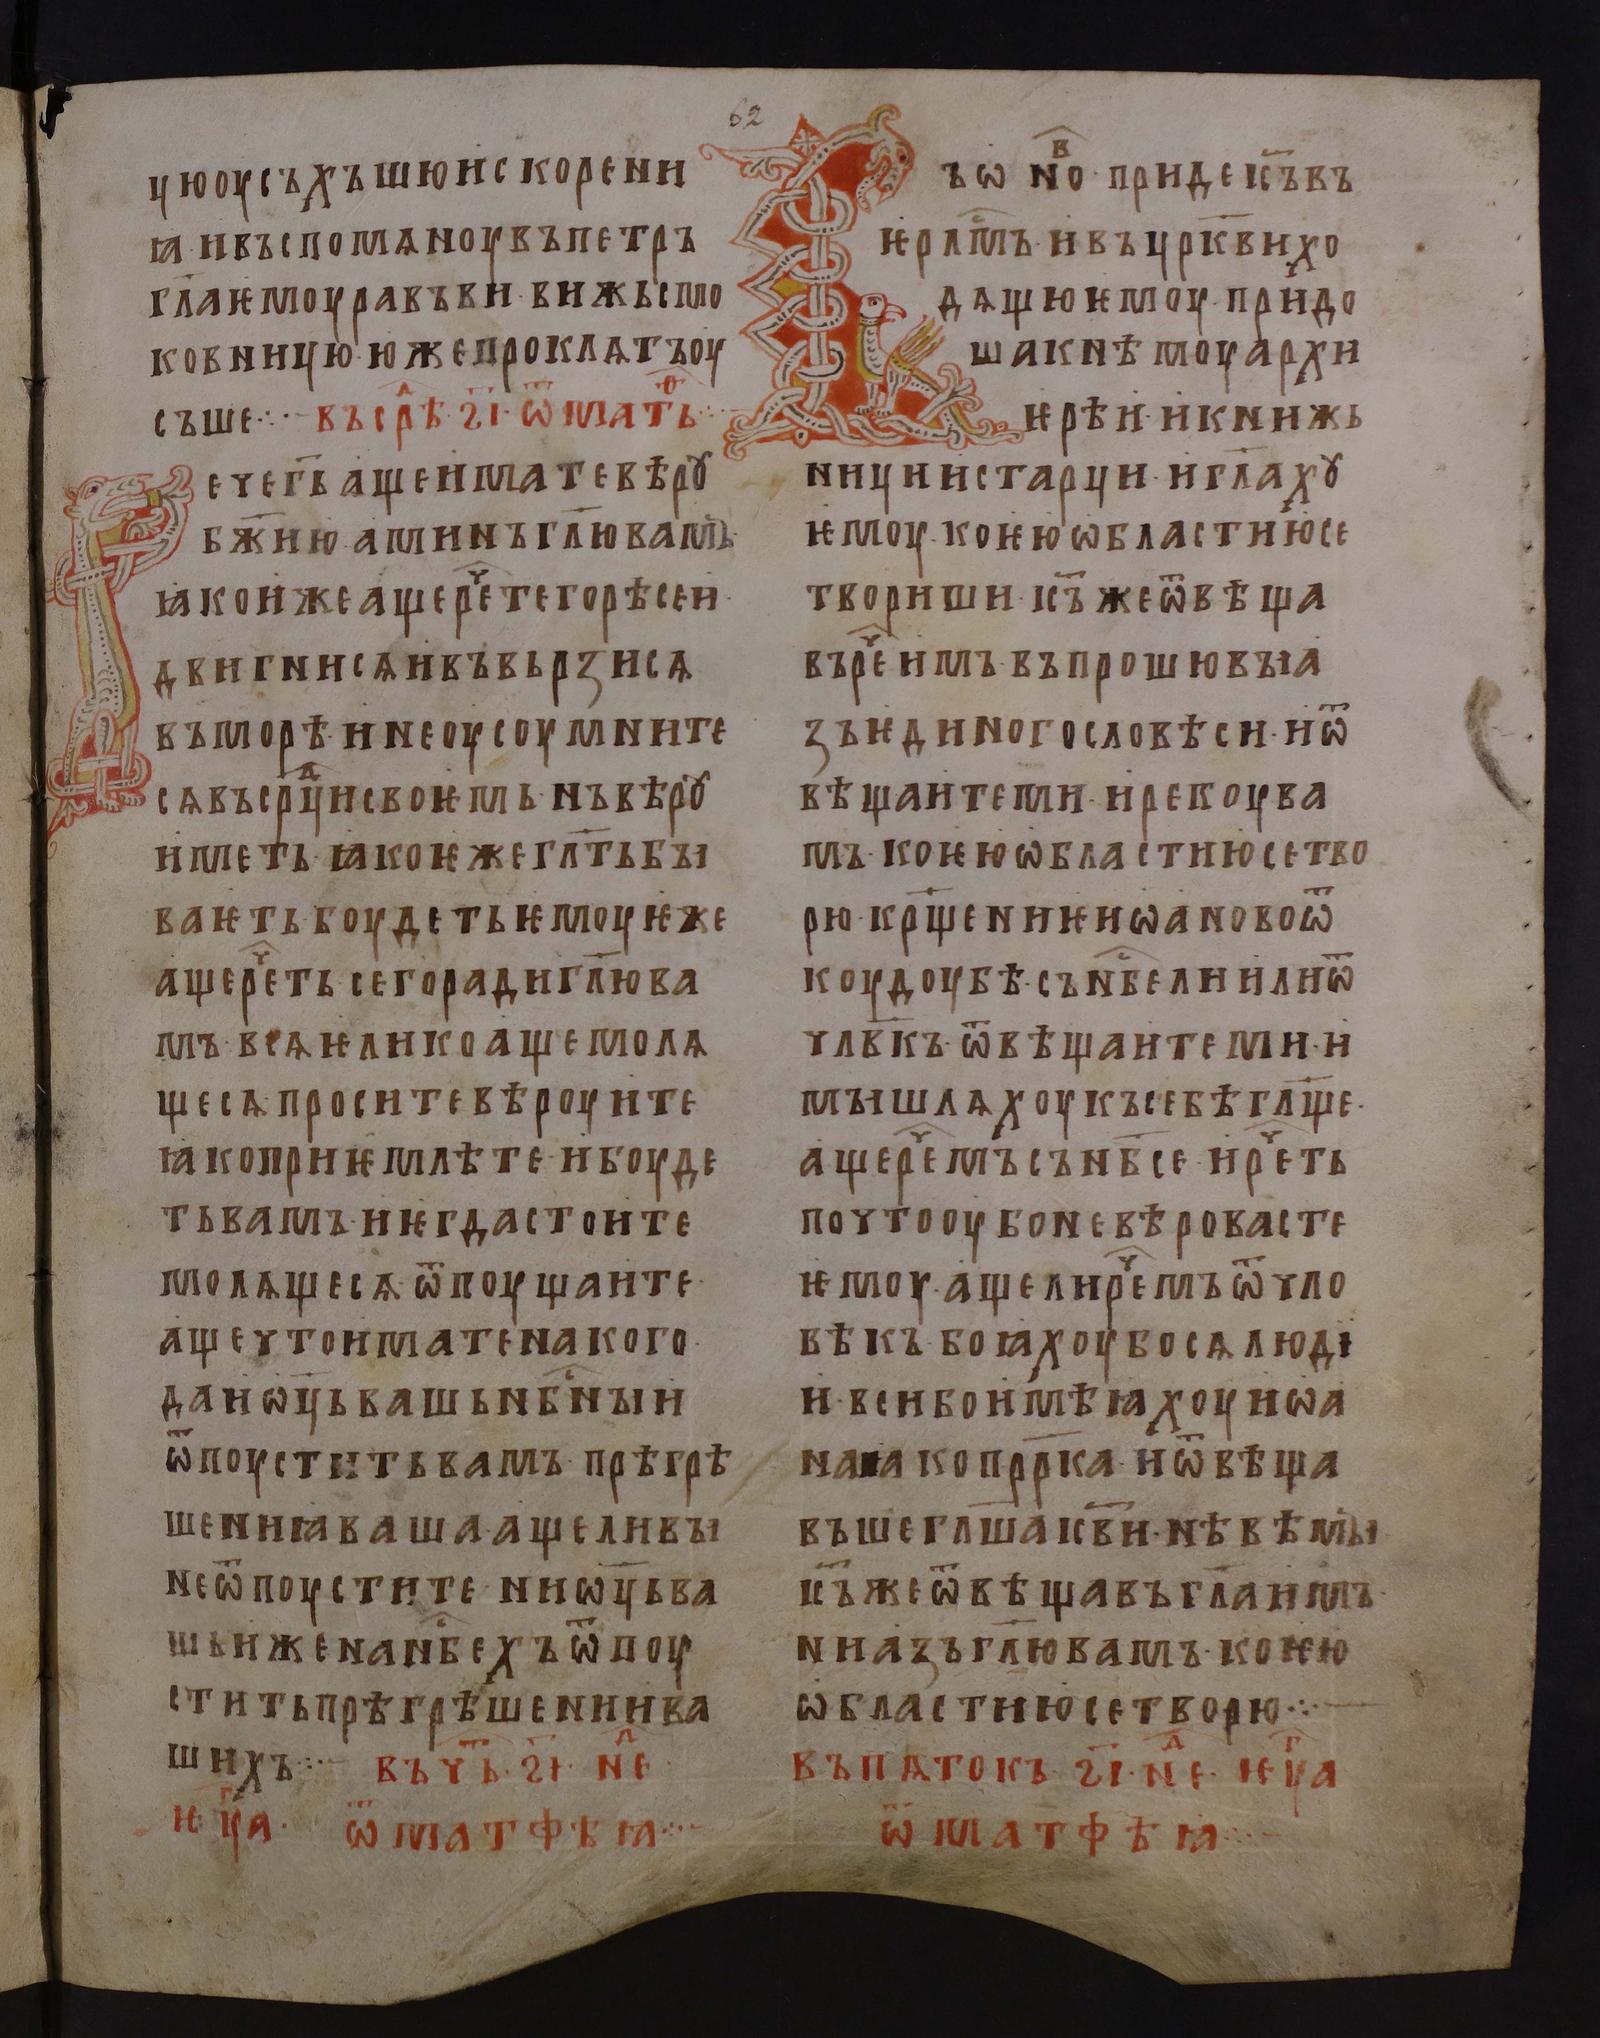 62
цюоусъхъшюисکорени
ꙗ·ивъспомѧноувъпетръ
гл҃аѥмоуравъви·вижьсмо
ковницю·южепроклѧтъоу
съше·:·въсрⷣѣ·г҃і·ѿматⷴ҇ь·:·
Речег҃ьащеиматевѣрꙋ
бж҃ию·аминъгл҃ювамъ·
ꙗкоижеащереⷱ҇тегорѣсеи·
двигнисѧивъвьрзисѧ
въморѣ·инеоусоумните
сѧвъсрⷣциисвоѥмь·нъвѣрꙋ
иметь·ꙗкоѥжегл҃тьбꙑ
ваѥть·боудетьѥмоуѥже
ащереⷱ҇ть·сегорадигл҃юва
мъ·всѧѥликоащемолѧ
щесѧ·проситевѣроуите
ꙗкоприѥмлѣте·ибоуде
тьвамъ·иѥгдастоите
молѧщесѧ·ѿпоущаите·
ащечтоиматенакого·
даиѡц҃ьвашьнбⷭ҇нꙑи
ѿпоуститьвамъ·прѣгрѣ
шениꙗваша·ащеливꙑ
неѿпоустите·ниѡц҃ьва
шьиженанбⷭ҇ехъѿпоу
ститьпрѣгрѣшенииива
шихъ·:·въчⷮь·г҃і·нⷣе·
ѥуⷢ҇а·ѿматфѣꙗ·:·
Въѡновⷪ҇·придеис҃ъвъ
ѥрⷭ҇лмъ·ивъцр҃квихо
дѧщюѥмоу·придо
шакнѣмоуархи
ѥрѣи·икнижь
ницииистарци·игл҃ахꙋ
ѥмоу·коѥюѡбластиюсе
твориши·ис҃ъжеѿвѣща
въреⷱ҇имъ·въпрошювꙑа
зъѥдиногословѣси·иѿ
вѣщаитеми·ирекоува
мъ·коѥюѡбластиюсетво
рю·кр҃щениѥиѡановоѿ
коудоубѣ·сън҃бселиилиѿ
члв҃къ·ѿвѣщаитеми·и
мꙑшлѧхоукъсебѣгл҃ще·
ащереⷱ҇мъсън҃бсе·иреⷱ҇ть
почтооубоневѣровасте
ѥмоу·ащелиреⷱ҇мъѿчло
вѣкъ·боꙗхоубосѧлюді
и·всибоимѣꙗхоуиѡа
наꙗкопрр҃ка·иѿвѣща
въшегл҃шаис҃ви·нѣвѣмꙑ
ис҃ъжеѿвѣщавъгл҃аимъ·
ниазъгл҃ювамъ·коѥю
ѡбластиюсетворю·:·
въпѧтокъ·г҃і·нⷣе·ѥуⷢ҇а
ѿматфѣꙗ·:·